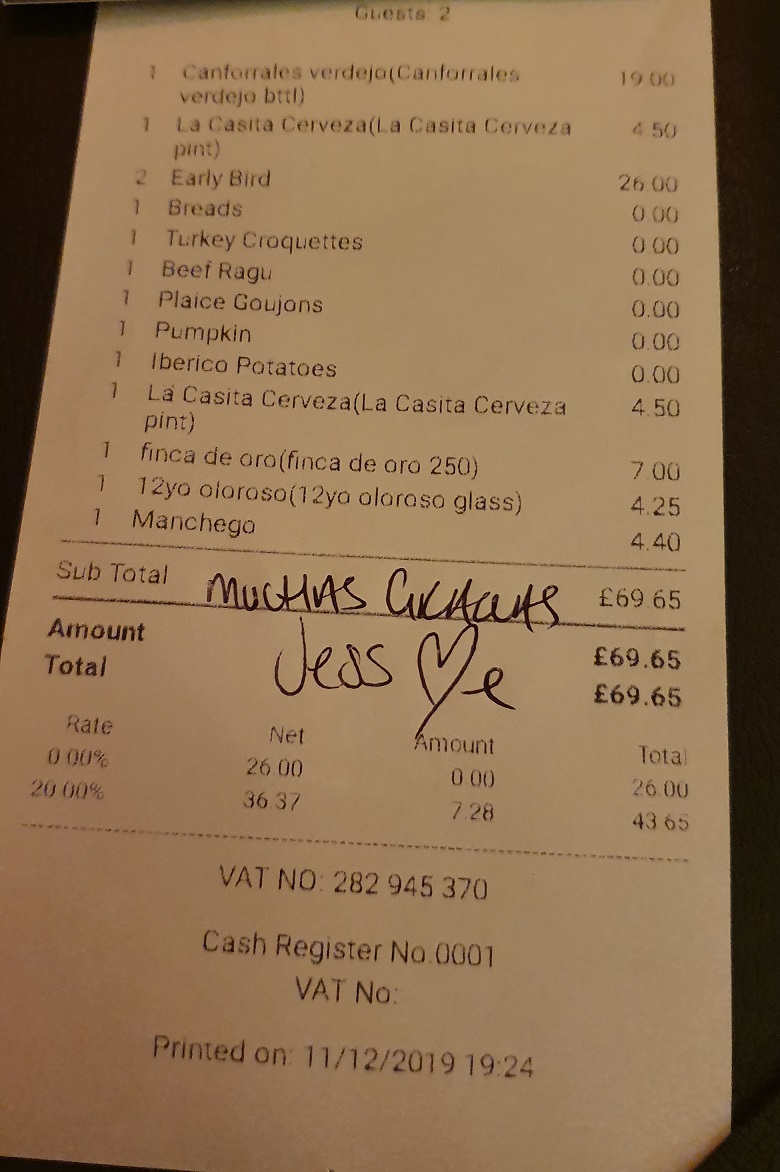 Guests: 2
1 Canforrales verdejo(Canforrales 19.00
verdejo bttl)
1 La Casita Cerveza(La Casita Cerveza 4.50
pint)
2 Early Bird 26.00
1 Breads 0.00
1 Turkey Croquettes 0.00
1 Beef Ragu 0.00
1 Plaice Goujons 0.00
1 Pumpkin 0.00
1 Iberico Potatoes 0.00
1 La Casita Cerveza(La Casita Cerveza 4.50
pint)
1 finca de oro(finca de oro 250) 7.00
1 12yo oloroso(12yo oloroso glass) 4.25
1 Manchego 4.40
Sub Total £69.65
MUCHAS GRACIAS
Amount £69.65
Jess
Total £69.65
Rate Net Amount Total
0.00% 26.00 0.00 26.00
20.00% 36.37 7.28 43.65
VAT NO: 282 945 370
Cash Register No.0001
VAT No:
Printed on: 11/12/2019 19:24